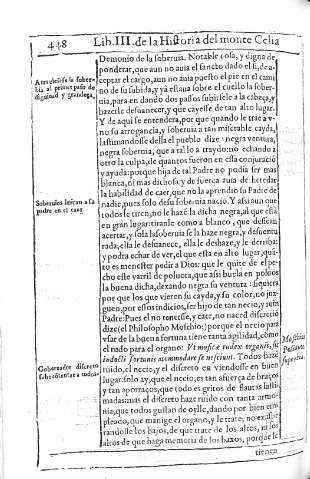 448 Lib. III. de la Historia del monte Celia
Demonio de la soberuia. Notable cosa, y digna de
ponderar, que aun no auia el sancto dado el sí, de a-
ceptar el cargo, aun no auia puesto el pie en el cami
no de su subida, y yà estaua sobre el cuello la sober-
uia, para en dandos dos passos subirsele a la cabeça, y
hazerle desuanecer, y que cayesse de tan alto lugar.
Y de aqui se entendera, por que quando le trae a v-
no su arrogancia, y soberuia a tan miserable cayda,
lastimandosse della el pueblo dize: negra ventura,
negra soberuia, que a tal lo a traydo: no echando a
otro la culpa, de quantos fueron en essa conjuració
y ayuda: porque hija de tal Padre no podia ser mas
blanca, ni mas dichosa; y de fuerça auia de heredar
la habilidad de caer, que no la aprendio su Padre de
nadie, pues solo de su soberuia nacio. Y assi aun que
todos le tiren, no le hazé la dicha negra, al que està
en gran lugar: tiranle como a blanco, que dessean
acertar, y sola la soberuia se la haze negra, y desuentu
rada; ella le desuanece, ella le deshaze, y le derriba:
y podra echar de ver, el que està en alto lugar, quá-
to es menester pedir a Dios: que le quite de el pe-
cho este varril de poluora, que assi buela en poluos
la buena dicha, dexando negra su ventura: siquiera
por que los que vieren su cayda, y su color, no juz-
guen, por essos indicios, ser hijo de tan necio, y ruin
Padre: Pues el no tenerse, y caer, no nace d discreció
dize (el Philosopho Moschio;) porque el necio para
vsar de la buena fortuna tiene tanta agilidad, cómo
el rudo para el organo: Vt musicæ rudes organis, sic
indocti fortunis acommodare se nesciunt. Todos hazé
ruido, el necio, y el discreto en viendosse en buen
lugar: solo ay, que el necio, es tan afuerça de braços
y tan aporraços, que todo es gritos de flautas lasti-
madas: mas el discreto haze ruido con tanta armo-
nia, que todos gustan de oylle, dando por bien em-
pleado, que manige el organo, y le trate; no exaspe-
randosse los bajos, de que trate de los altos, ni los
altos de que haga memoria de los baxos, porque le
tienen
beruia al primer passo de
dignidad y grandeza,
Soberuios imitan a su
padre en el caer
Gobernador discreto
a todos.
Moschius